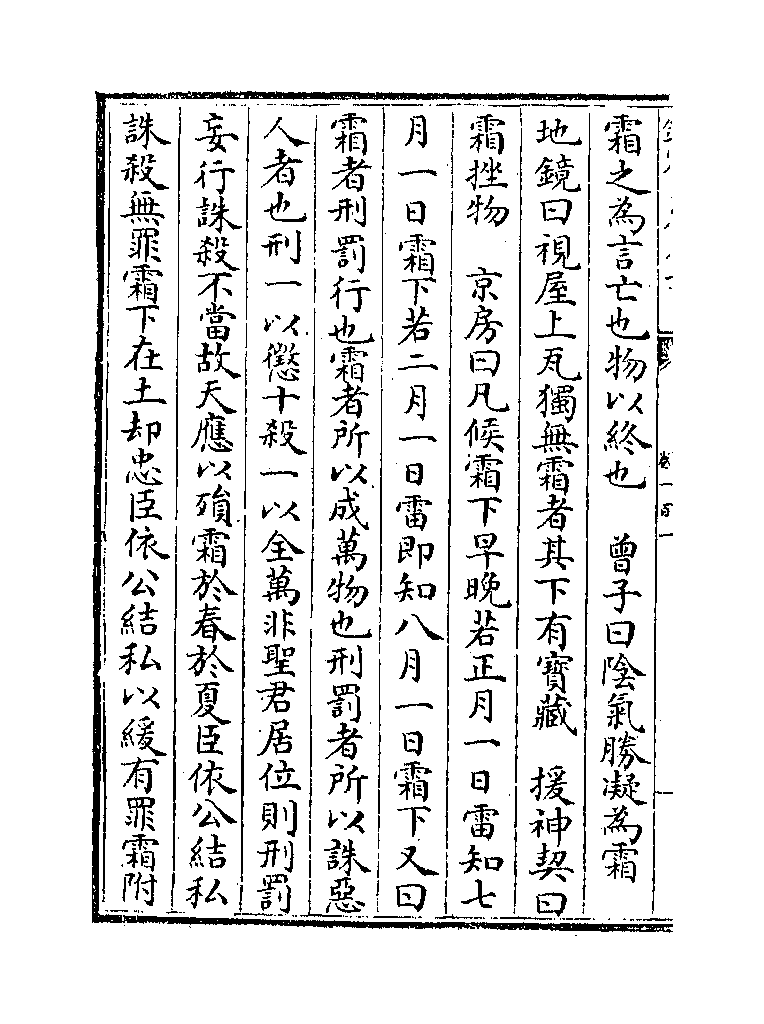 霜之為言亡也物以終也　曾子曰陰氣勝凝為霜
地鏡曰視屋上瓦獨無霜者其下有寶藏　援神契曰
霜挫物　京房曰凡候霜下早晚若正月一日雷知七
月一日霜下若二月一日雷即知八月一日霜下又曰
霜者刑罰行也霜者所以成萬物也刑罰者所以誅惡
人者也刑一以懲十殺一以全萬非聖君居位則刑罰
妄行誅殺不當故天應以殞霜於春於夏臣依公結私
誅殺無罪霜下在土却忠臣依公結私以緩有罪霜附
卷一百一